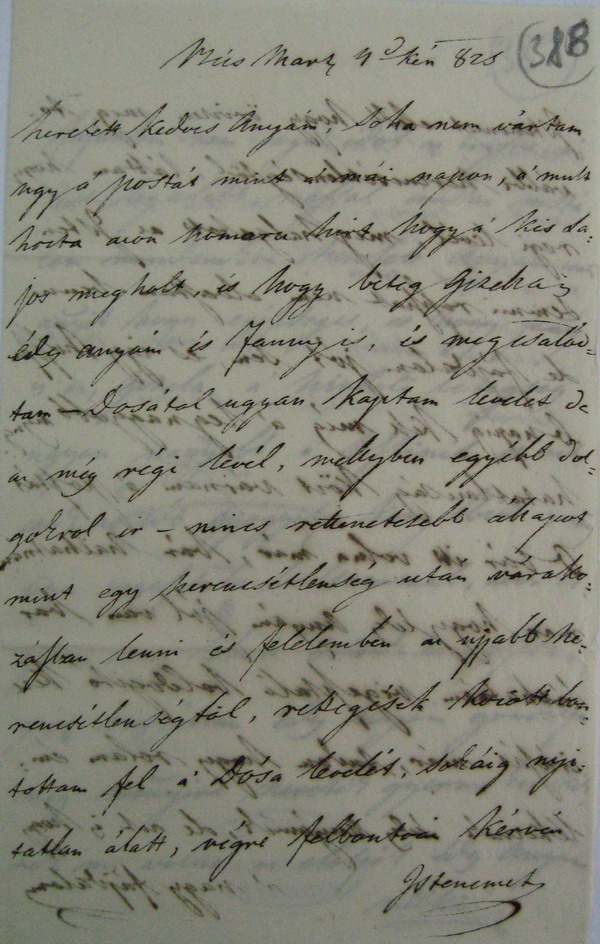 388
Bécs Mart 4d kén 825
Szeretett kedves Anyám, soha nem vártam
ugy a postát mint a mái napon, a' mult
hozta azon szomoru hirt hogy a' kis La-
jos megholt, és hogy beteg Gizela
édes anyám és Fanny is, és megcsalód-
tam — Dosátol ugyan kaptam levelet de
az még régi levél, mellyben egyébb dol-
gokrol ir — nincs rettenetesebb állapot
mint egy szerencsétlenség utan várako-
zásban lenni és félelemben az ujjabb sze-
rencsétlenségtöl, rettegések között bon-
tottam fel a' Dósa levelét, sokáig nyi-
tatlan álatt, végre felbontván kérvén
Istenemet